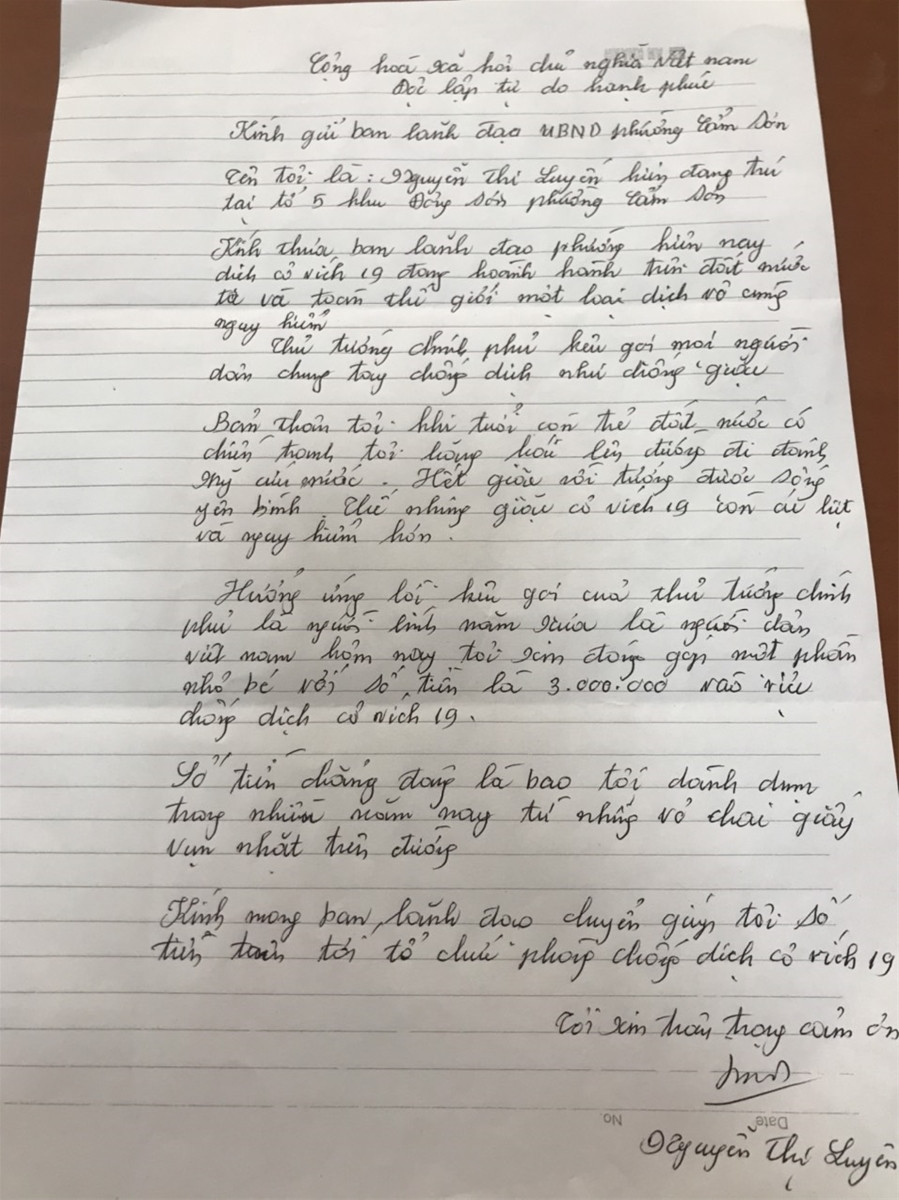 Cộng hoá xã hỏi chủ nghĩa Việt nam
Độc lập tự do hạnh phúc
Kính gửi ban lãnh đạo UBND phường Cẩm Sơn
Tên tôi là: Nguyễn Thị Luyên hiện đang trú
tại tổ 5 khu Đông Sơn phường Cẩm Sơn
Kính thưa ban lãnh đạo phường hiện nay
dịch cô vích 19 đang hoành hành trên đất nước
ta và toàn thế giới một loại dịch vô cùng
nguy hiểm
Thủ tướng chính phủ kêu gọi mọi người
dân chung tay chống dịch như chống giặc
Bản thân tôi khi tuổi còn trẻ đất nước có
chiến tranh tôi hăng hái lên đường đi đánh
mỹ cứu nước. Hết giặc rồi tưởng được sống
yên bình. Thế nhưng giặc cô vich 19 còn ác liệt
và nguy hiểm hơn.
Hưởng ứng lời kêu gọi của thủ tướng chính
phủ là người lính năm xưa là người dân
việt nam hôm nay tôi xin đóng góp một phần
nhỏ bé với số tiền là 3.000.000 vào việc
chống dịch cô vich 19.
Số tiền chẳng đáng là bao tôi dành dụm
trong nhiều năm nay từ những vỏ chai giấy
vụn nhặt trên đường
Kính mong ban lãnh đạo chuyển giúp tôi số
tiền trên tới tổ chức phòng chống dịch cô vich 19
Tôi xin trân trọng cảm ơn
Date
No.
Nguyễn Thị Luyên